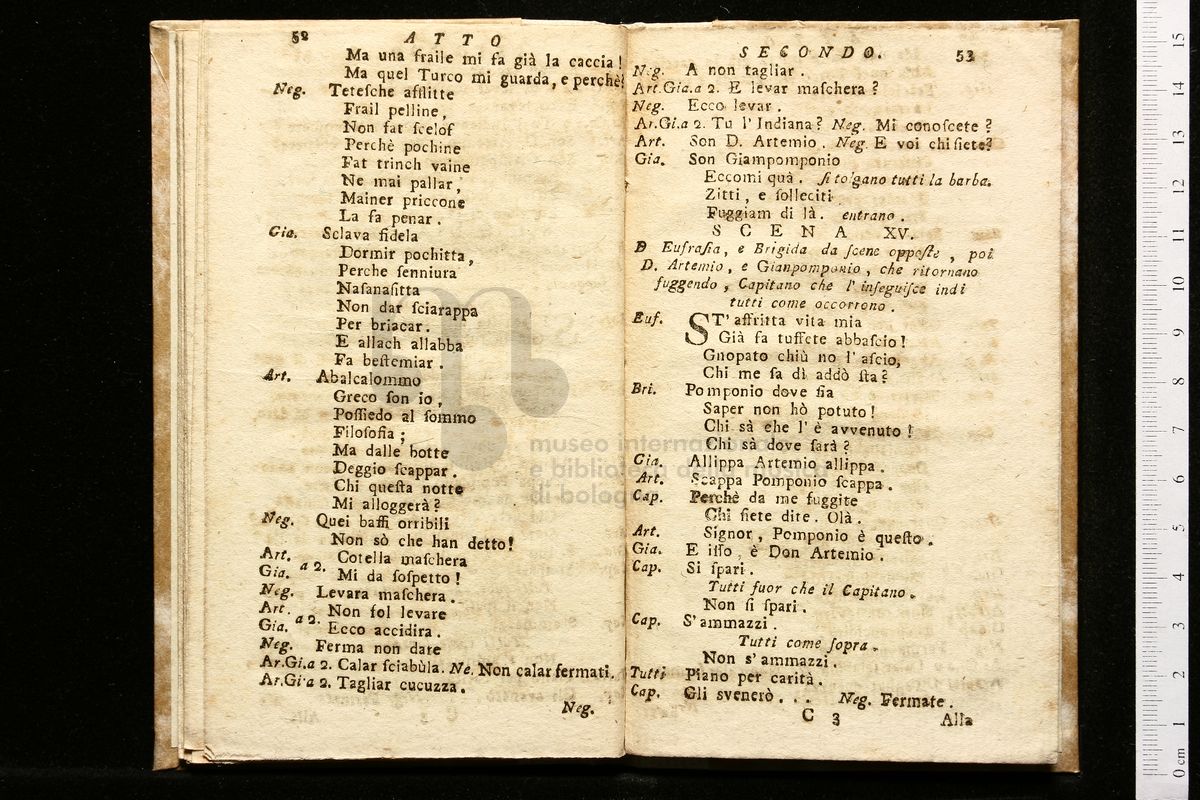 52 ATTO
Ma una fraile mi fa già la caccia!
Ma quel Turco mi guarda, e perchè!
Neg. Teteſche afflitte
Frail pelline,
Non fat ſcelof
Perchè pochine
Fat trinch vaine
Ne mai pallar,
Mainer priccone
La fa penar.
Gia. Sclava fidela
Dormir pochitta,
Perche ſenniura
Naſanaſitta
Non dar ſciarappa
Per briacar.
E allach allabba
Fa beſtemiar.
Art. Abalcalommo
Greco ſon io,
Poſſiedo al ſommo
Filoſofia;
Ma dalle botte
Deggio ſcappar.
Chi queſta notte
Mi alloggerà?
Neg. Quei baffi orribili
Non sò che han detto!
Art. Cotella maſchera
Gia. a 2. Mi da ſoſpetto!
Neg. Levara maſchera.
Art. Non ſol levare
Gia. a 2. Ecco accidira.
Neg. Ferma non dare
Ar.Gi.a 2. Calar ſciabùla. Ne. Non calar fermati.
Ar.Gi.a 2. Tagliar cucuzza.
Neg.
SECONDO. 53
Neg. A non tagliar.
Art.Gia.a 2. E levar maſchera?
Neg. Ecco levar.
Ar.Gi.a 2. Tu l'Indiana? Neg. Mi conoſcete?
Art. Son D. Artemio. Neg. E voi chi ſiete?
Gia. Son Giampomponio
Eccomi quà. ſi tolgano tutti la barba.
Zitti, e ſolleciti
Fuggiam di là. entrano.
SCENA XV.
D Eufraſia, e Brigida da ſcene oppoſte, poi
D. Artemio, e Gianpomponio, che ritornano
fuggendo, Capitano che l'inſeguiſce indi
tutti come occorrono.
Euf. ST'affritta vita mia
Già fa tuffete abbaſcio!
Gnopato chiù no l'aſcio,
Chi me ſa dì addò ſta?
Bri. Pomponio dove ſia
Saper non hò potuto!
Chi sà che l'è avvenuto!
Chi sà dove ſarà?
Gia. Allippa Artemio allippa.
Art. Scappa Pomponio ſcappa.
Cap. Perchè da me fuggite
Chi ſiete dite. Olà.
Art. Signor, Pomponio è queſto.
Gia. E iſſo, è Don Artemio.
Cap. Si ſpari.
Tutti fuor che il Capitano.
Non ſi ſpari.
Cap. S'ammazzi.
Tutti come ſopra.
Non s'ammazzi.
Tutti Piano per carità.
Cap. Gli svenerò... Neg. Fermate.
C 3 Alla
museo internazionale
e biblioteca della musica
di bologna
0 cm 1 2 3 4 5 6 7 8 9 10 11 12 13 14 15